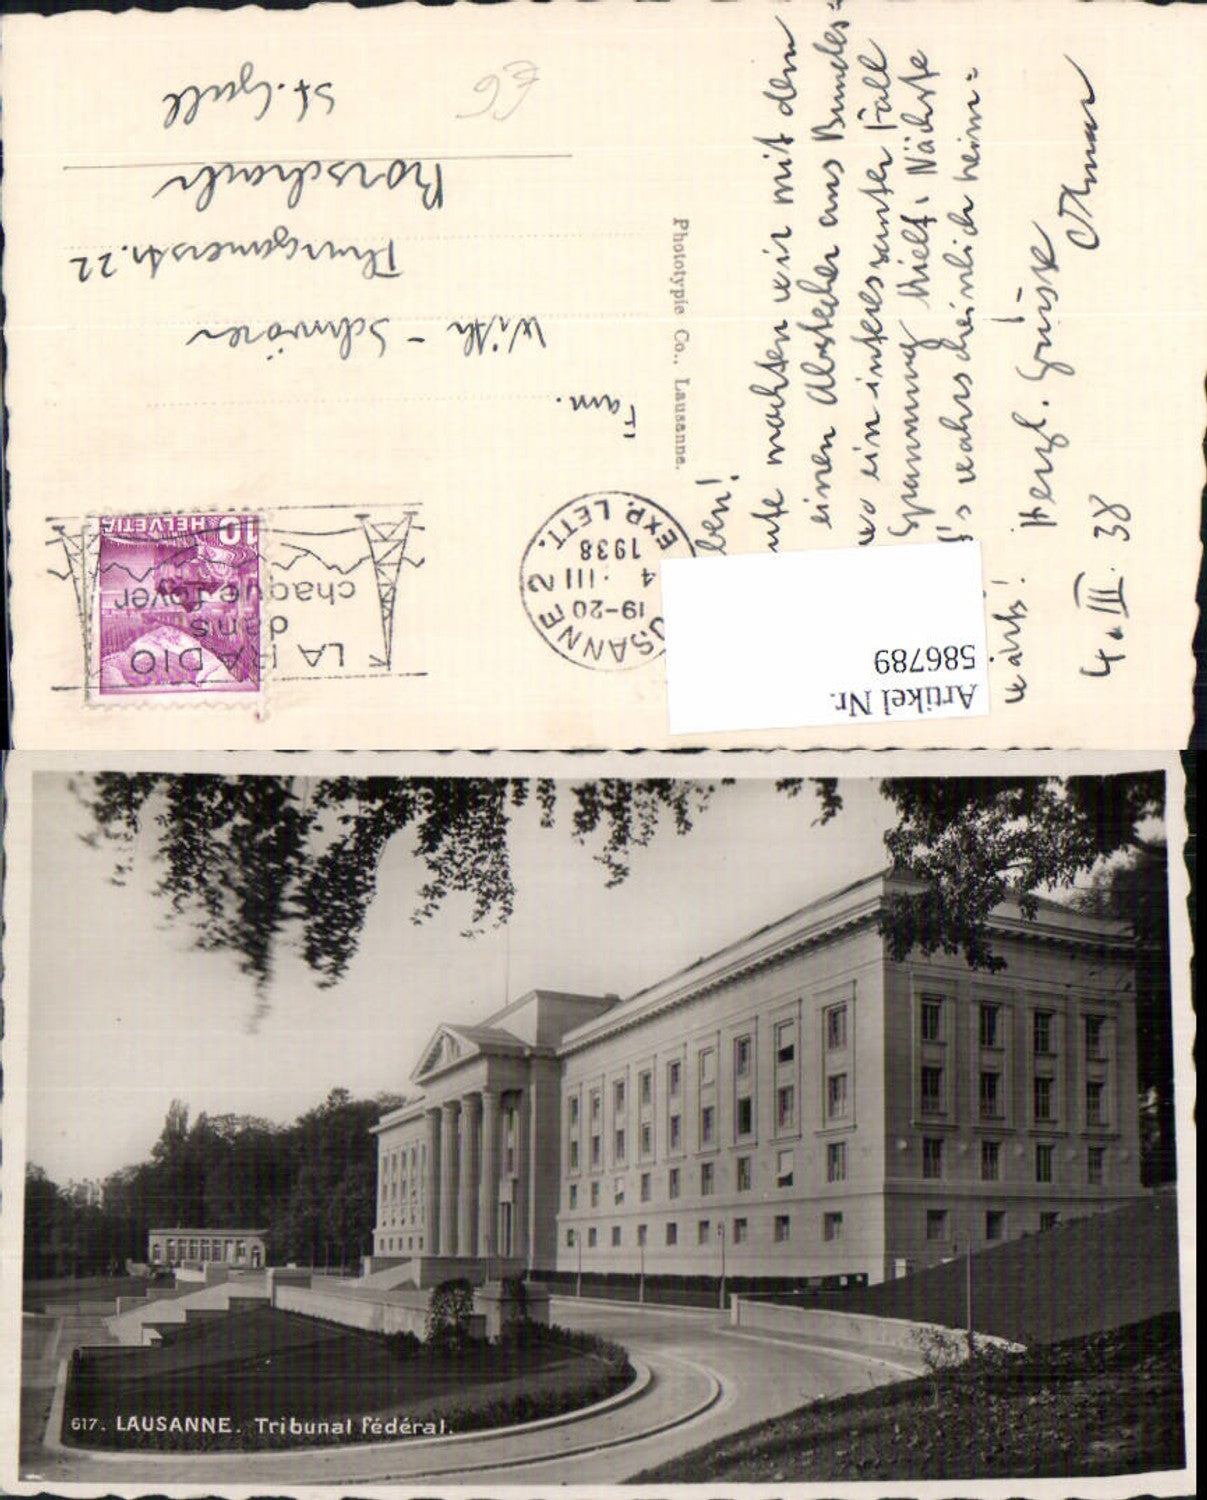 ben!
machten wir mit dem
einen Abstecher ans Bundes=
wo ein interessanter Fall
Spannung hielt. Nächste
's wahrscheinlich heim=
wärts!
Herzl. Grüsse
4. III. 38
Phototypie Co., Lausanne.
EXP. LETT.
1938
4 · III
19-20
USANNE 2
HELVETIA
10
LA RADIO
dans
chaque foyer
Fam.
Wirth - Schwörer
Thurgauerstr. 22
Rorschach
St. Gall
Artikel Nr.
586789
617. LAUSANNE. Tribunal fédéral.